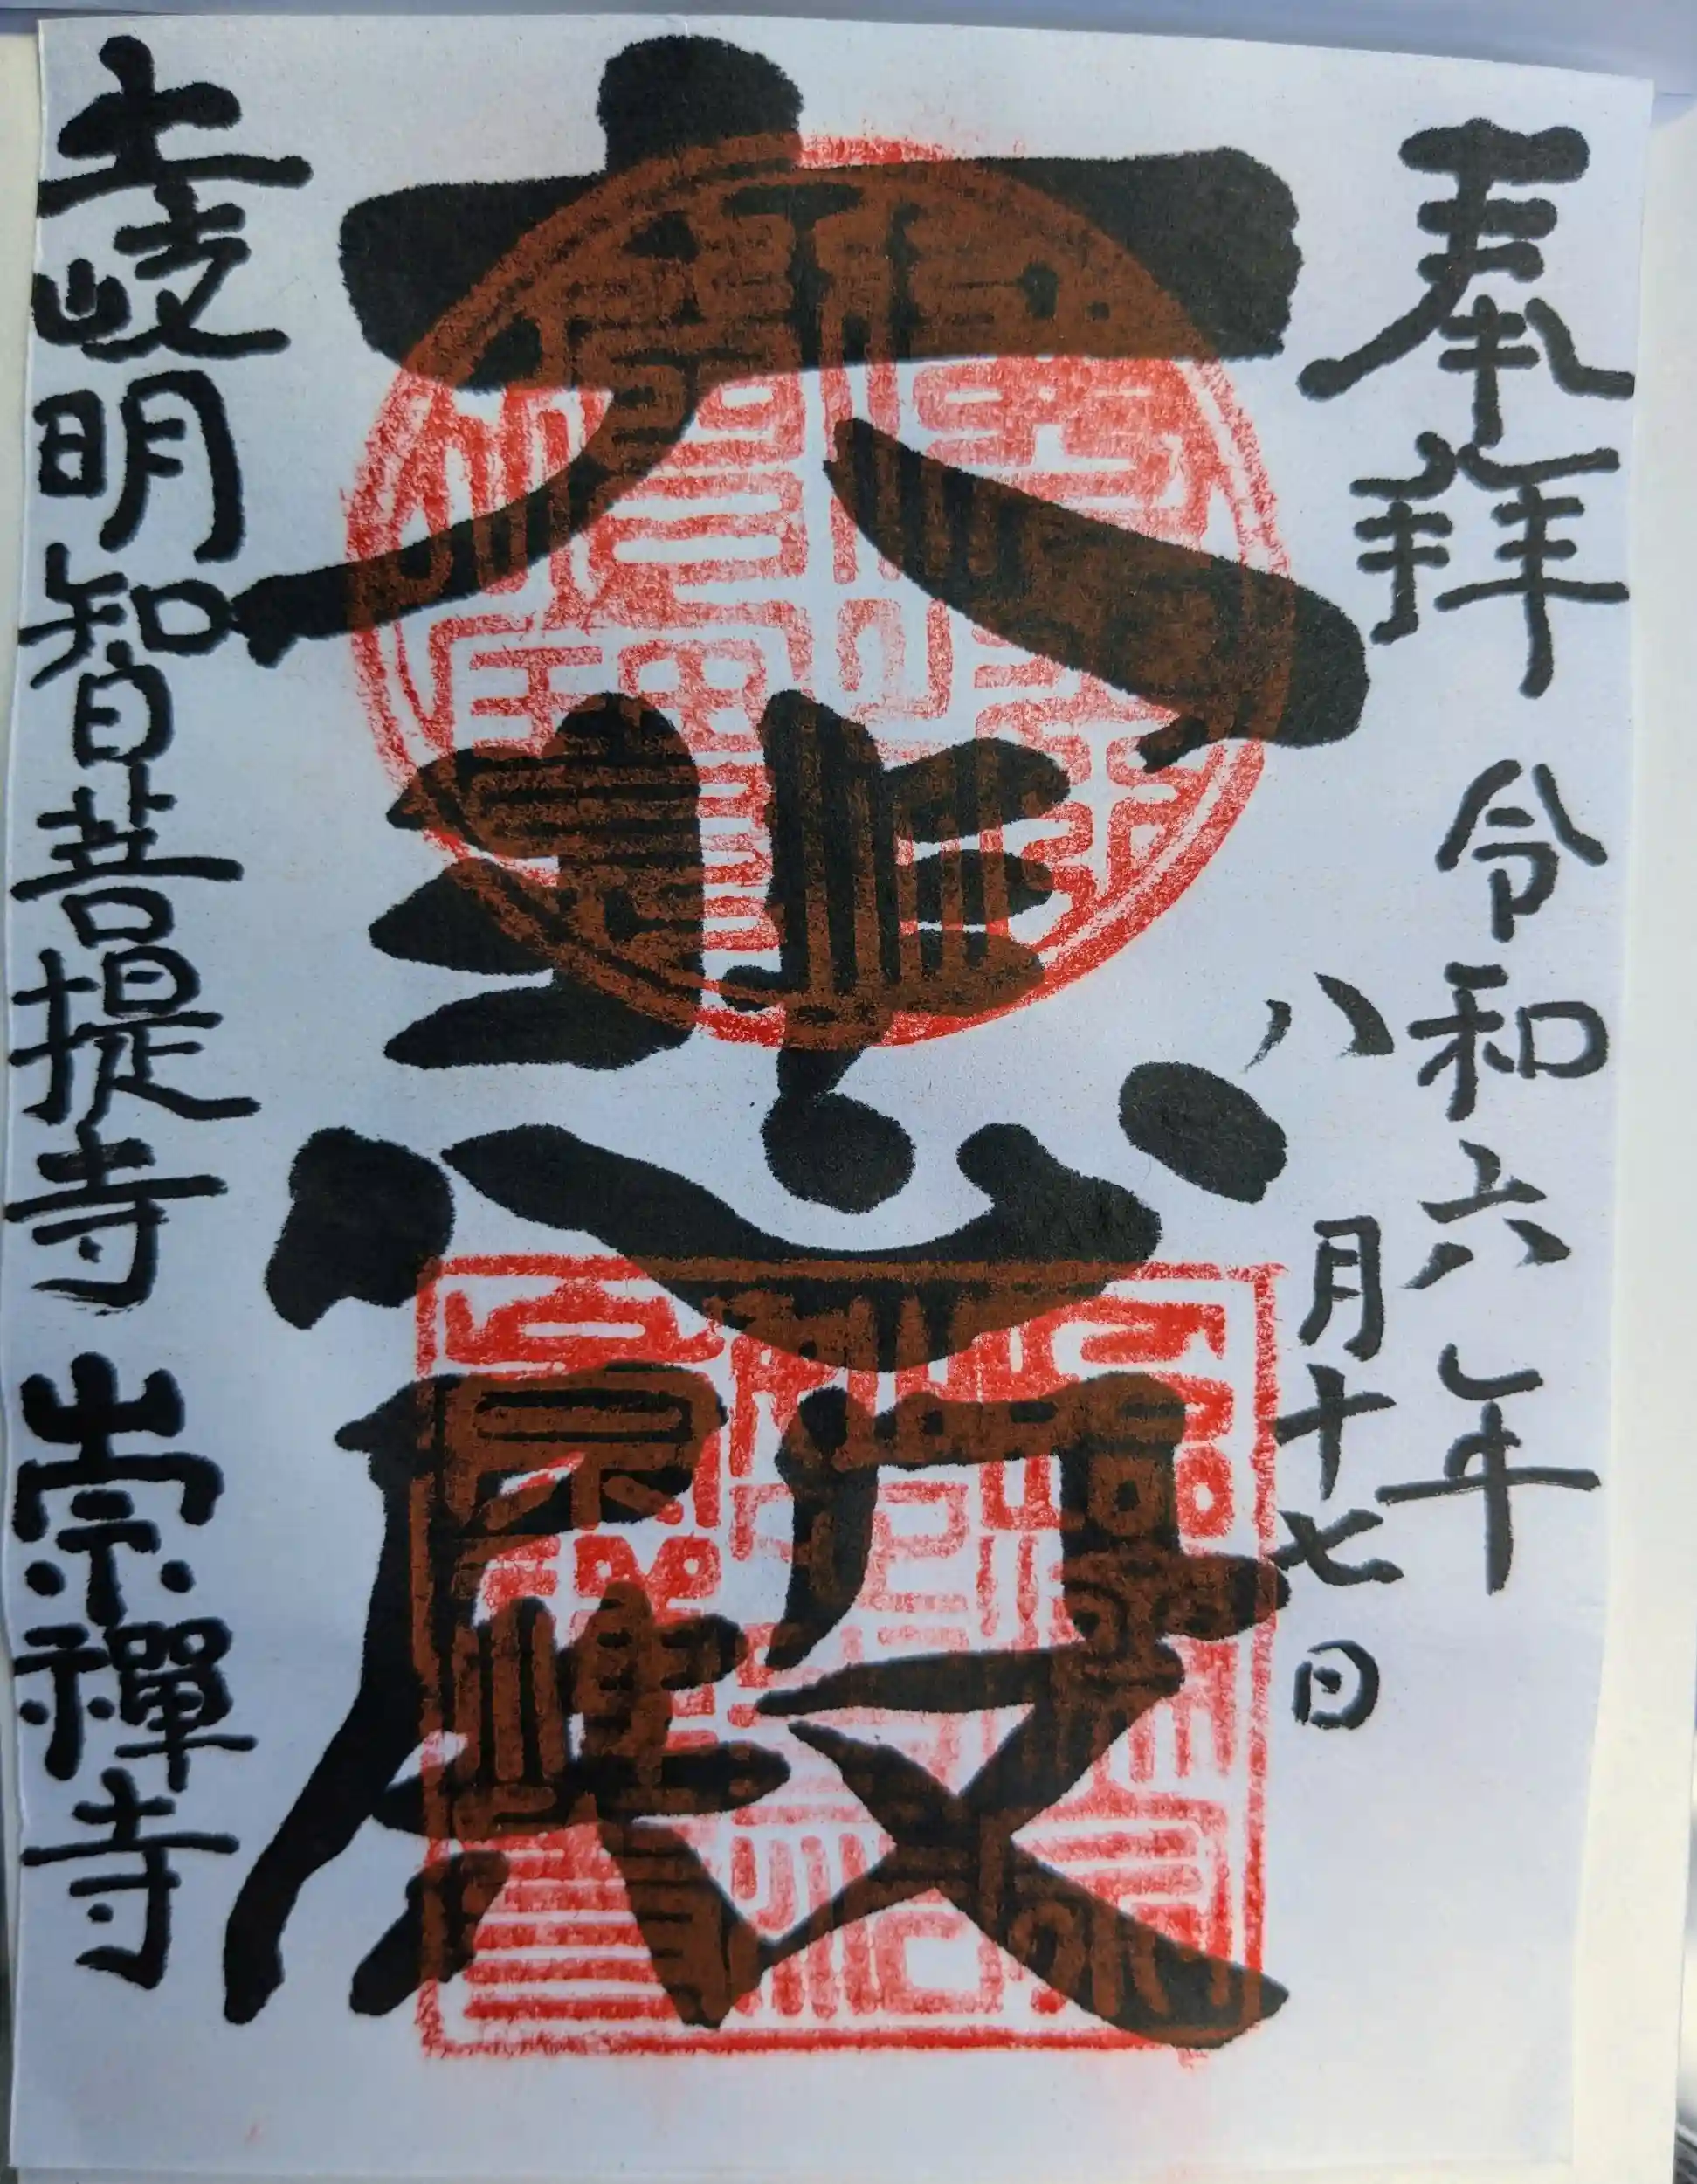 奉拜
令和六年
八月十七日
六悲殿
土岐明智菩提寺 崇禪寺